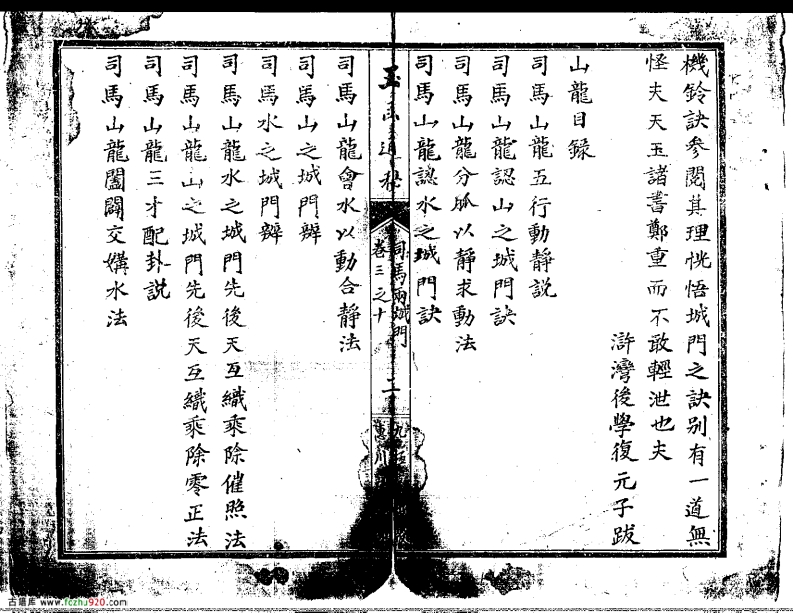 機鈴訣參閱其理恍悟城門之訣别有一道無
怪夫天玉諸書鄭重而不敢輕泄也夫
滸灣後學復元子跋
山龍目録
司馬山龍五行動静説
司馬山龍認山之城門訣
司馬山龍分脈以静求動法
司馬山龍認水之城門訣
玉函通秘
司馬兩城門
卷三之十
二
司馬山龍會水以動合静法
司馬山之城門辨
司馬水之城門辨
司馬山龍水之城門先後天互織乘除催照法
司馬山龍山之城門先後天互織乘除零正法
司馬山龍三才配卦説
司馬山龍闔闢交媾水法
古籍库 www.fczhj920.com